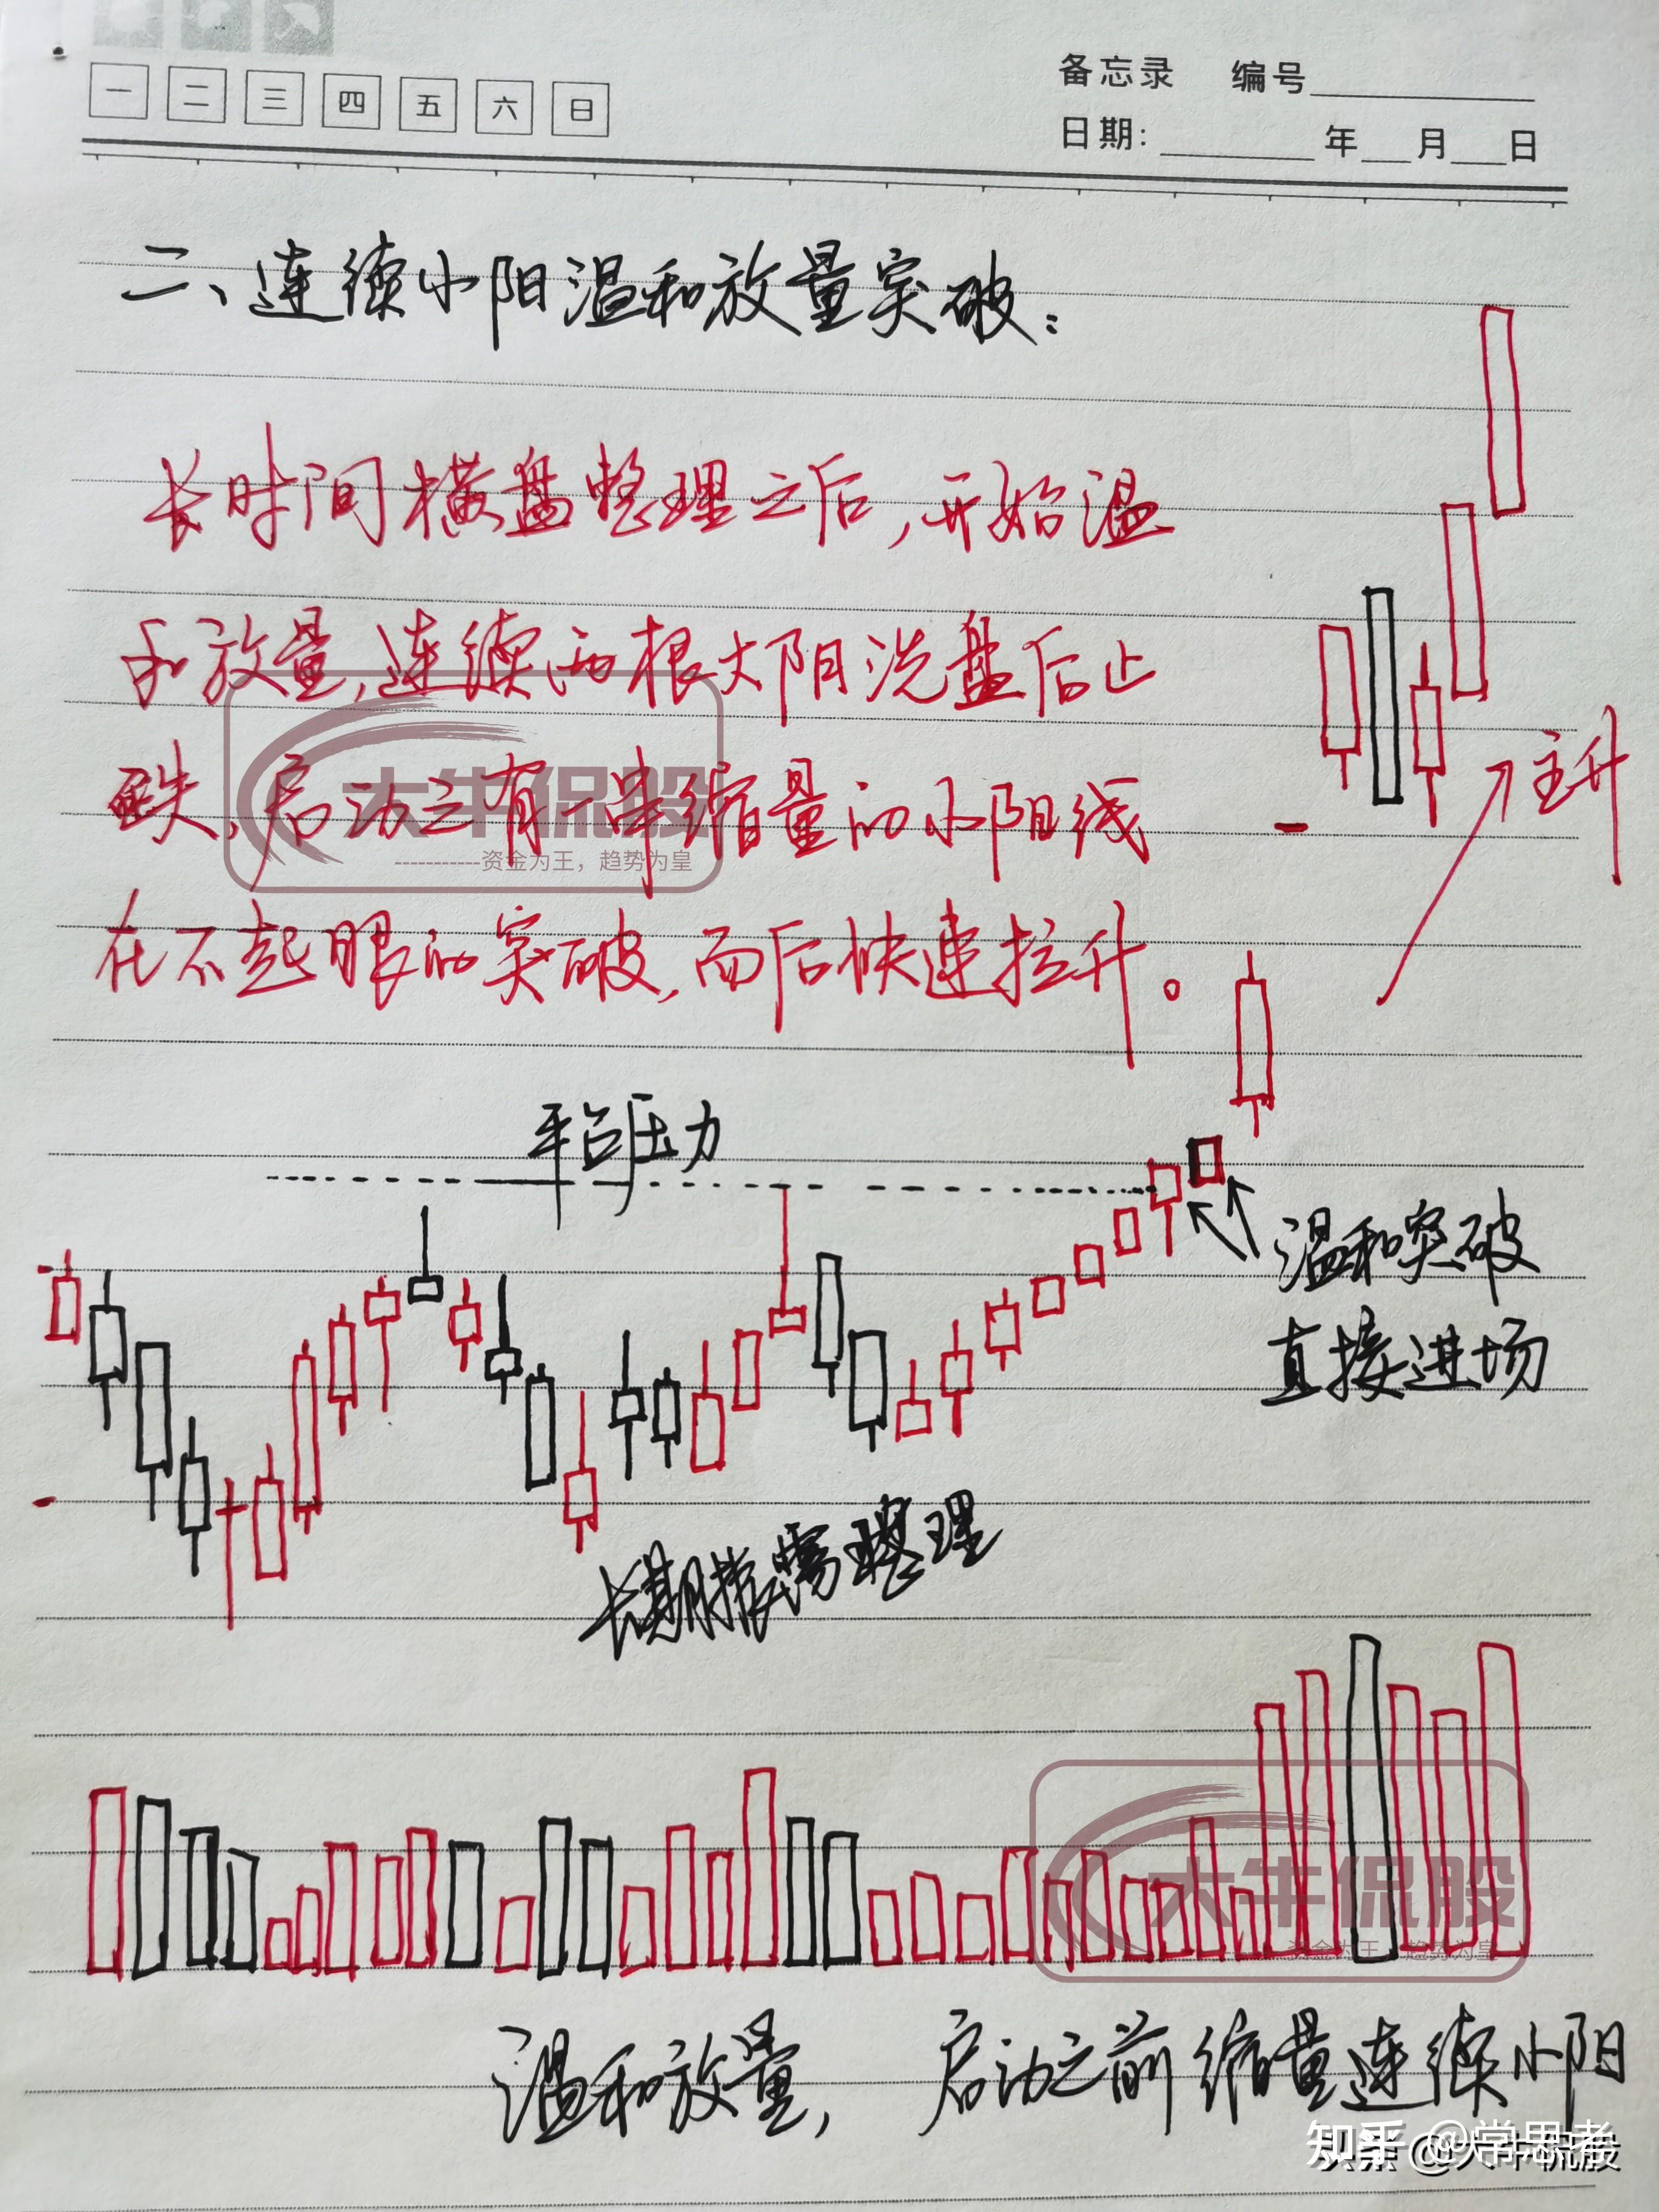 一 二 三 四 五 六 日
备忘录 编号
日期: 年 月 日
二、连续小阳温和放量突破：
长时间横盘整理之后，开始温
和放量，连续两根大阴洗盘后止
跌，启动之有一串缩量的小阳线
在不起眼的突破，而后快速拉升。
主升
平台压力
温和突破
直接进场
长期震荡整理
温和放量，启动之前缩量连续小阳
大牛侃股
资金为王，趋势为皇
大牛侃股
资金为王，趋势为皇
知乎 @学思者
头条 @大牛侃股